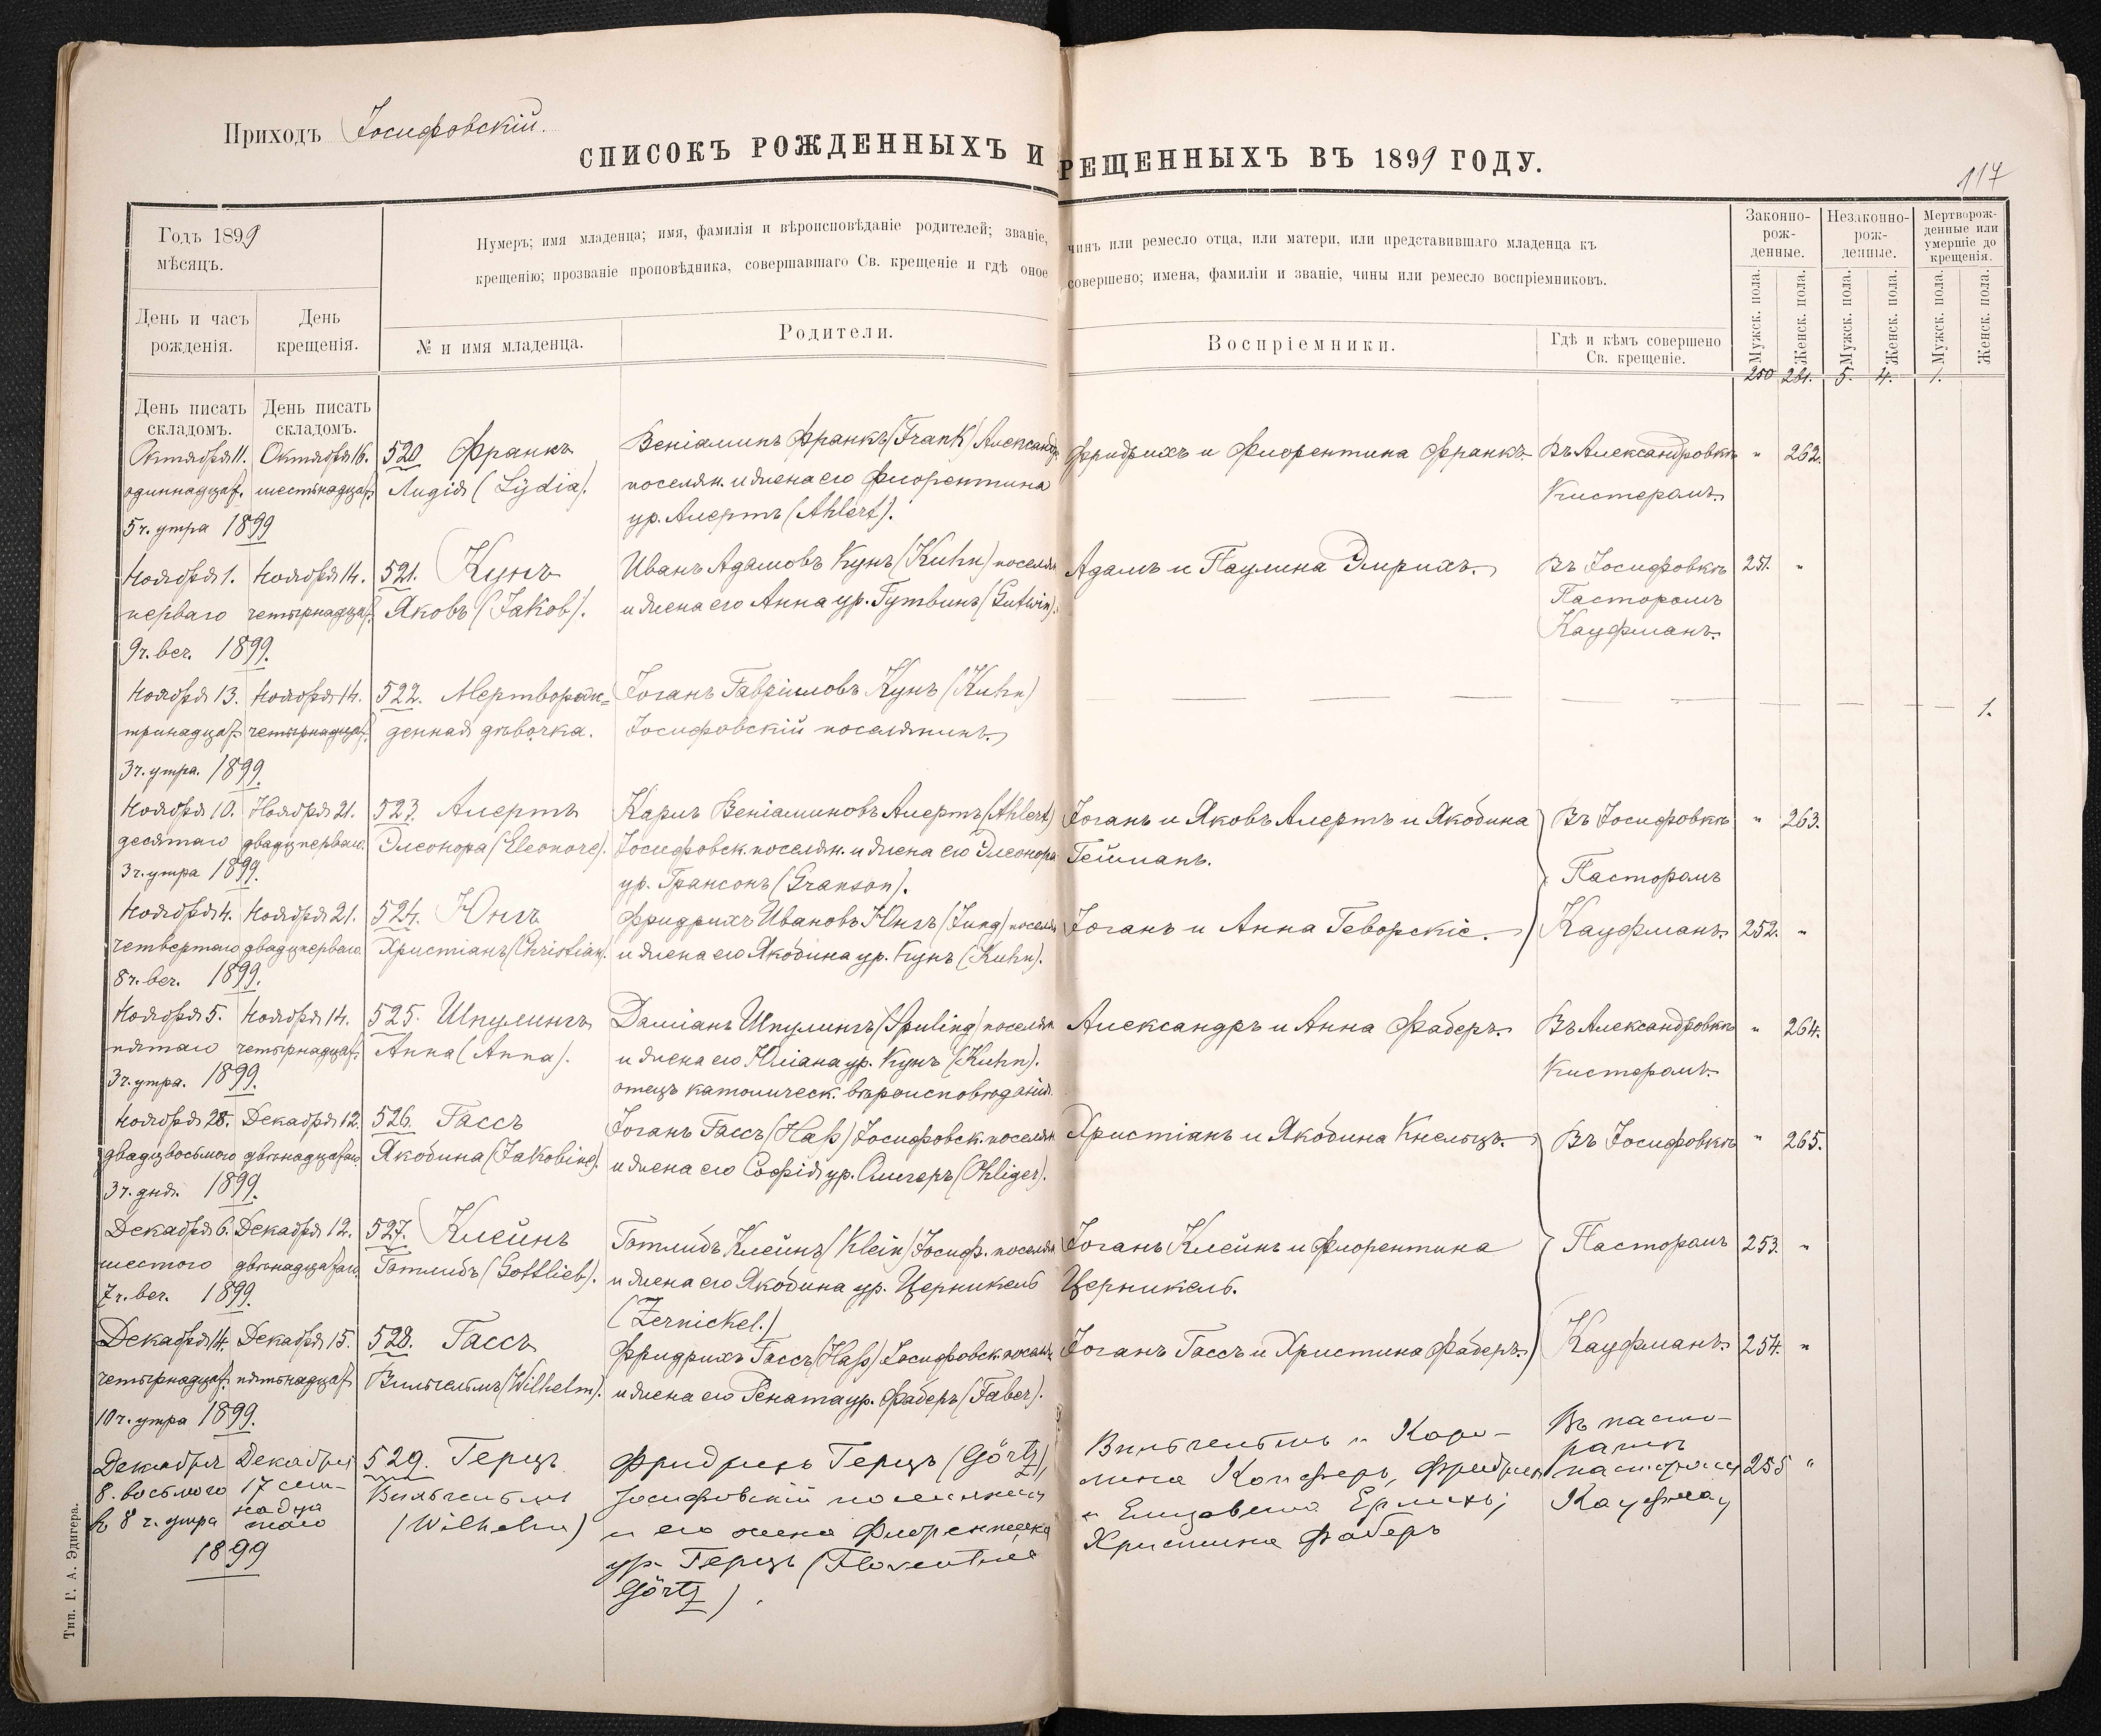 Приходъ Іосифовскій.
СПИСОКЪ РОЖДЕННЫХЪ И РЕЩЕННЫХЪ ВЪ 1899 ГОДУ.
117
Годъ 1899
мѣсяцъ.
Нумеръ; имя младенца; имя, фамилія и вѣроисповѣданіе родителей; званіе, чинъ или ремесло отца, или матери, или представившаго младенца къ
крещенію; прозваніе проповѣдника, совершавшаго Св. крещеніе и гдѣ оное совершено; имена, фамиліи и званіе, чины или ремесло воспріемниковъ.
Законно-
рож-
денные.
Незаконно-
рож-
денные.
Мертворож-
денные или
умершіе до
крещенія.
День и часъ
рожденія.
День
крещенія.
№ и имя младенца.
Родители.
Воспріемники.
Гдѣ и кѣмъ совершено
Св. крещеніе.
Мужск. пола.
Женск. пола.
Мужск. пола.
Женск. пола.
Мужск. пола.
Женск. пола.
250 261. 5. 4. 1.
День писать
складомъ.
День писать
складомъ.
Октября 11. Октября 16. 520 Франкъ Веніаминъ Франкъ (Frank) Александр. Фридрихъ и Флорентина Франкъ. Въ Александровкѣ " 262.
одиннадцат. шестнадцат. Лидія (Lydia). поселян. и жена его Флорентина Кистеромъ.
5 ч. утра 1899 ур. Алертъ (Ahlert).
Ноября 1. Ноября 14. 521. Кунъ Иванъ Адамовъ Кунъ (Kuhn) поселян. Адамъ и Паулина Эмрихъ. Въ Іосифовкѣ 251. "
перваго четырнадцат. Яковъ (Jakob). и жена его Анна ур. Гутвинъ (Gutwin). Пасторомъ
9 ч. веч. 1899. Кауфманъ.
Ноября 13. Ноября 14. 522. Мертворож= Іоганъ Гавріиловъ Кунъ (Kuhn) 1.
тринадцат. четырнадцат. денная дѣвочка. Іосифовскій поселянинъ.
3 ч. утра. 1899.
Ноября 10. Ноября 21. 523. Алертъ Карлъ Веніаминовъ Алертъ (Ahlert) Іоганъ и Яковъ Алертъ и Якобина Въ Іосифовкѣ " 263.
десятаго двадц. перваго. Элеонора (Eleonore). Іосифовск. поселян. и жена его Элеонора Гейманъ.
3 ч. утра 1899. ур. Грансонъ (Granson). Пасторомъ
Ноября 4. Ноября 21. 524. Юнгъ Фридрихъ Ивановъ Юнгъ (Jung) поселян. Іоганъ и Анна Геворскіе. Кауфманъ. 252. "
четвертаго двадц. перваго. Христіанъ (Christian). и жена его Якобина ур. Кунъ (Kuhn).
8 ч. веч. 1899.
Ноября 5. Ноября 14. 525. Шпулингъ Даміанъ Шпулингъ (Spuling) поселян. Александръ и Анна Фаберъ. Въ Александровкѣ " 264.
пятаго четырнадцат. Анна (Anna). и жена его Юліана ур. Кунъ (Kuhn). Кистеромъ.
3 ч. утра. 1899. отецъ католическ. вѣроисповѣданія.
Ноября 28. Декабря 12. 526. Гассъ Іоганъ Гассъ (Haß) Іосифовск. поселян. Христіанъ и Якобина Кнельцъ. Въ Іосифовкѣ " 265.
двадц. восьмого двѣнадцатаго. Якобина (Jakobine). и жена его Софія ур. Олигеръ (Ohliger).
3 ч. дня. 1899.
Декабря 6. Декабря 12. 527. Клейнъ Готлибъ Клейнъ (Klein) Іосиф. поселян. Іоганъ Клейнъ и Флорентина Пасторомъ 253. "
шестого двѣнадцатаго. Готлибъ (Gottlieb). и жена его Якобина ур. Церникель Церникель.
7 ч. веч. 1899. (Zernickel.)
Декабря 14. Декабря 15. 528. Гассъ Фридрихъ Гассъ (Haß) Іосифовск. поселян. Іоганъ Гассъ и Христина Фаберъ. Кауфманъ. 254. "
четырнадцат. пятнадцат. Вильгельмъ (Wilhelm). и жена его Рената ур. Фаберъ (Faber).
10 ч. утра 1899.
Декабря Декабря 529. Герцъ Фридрихъ Герцъ (Görtz), Вильгельмъ и Каро- Въ пасто- 255 "
8. восьмого 17 сем- Вильгельмъ Іосифовскій поселянинъ лина Копферъ, Фридрихъ ратѣ
въ 8 ч. утра надца таго (Wilhelm) и его жена Флорентина и Елизавета Ерлихъ; пасторомъ
1899 ур. Герцъ (Florentine Христина Фаберъ Кауфман
Görtz).
Тип. Г. А. Эдигера.